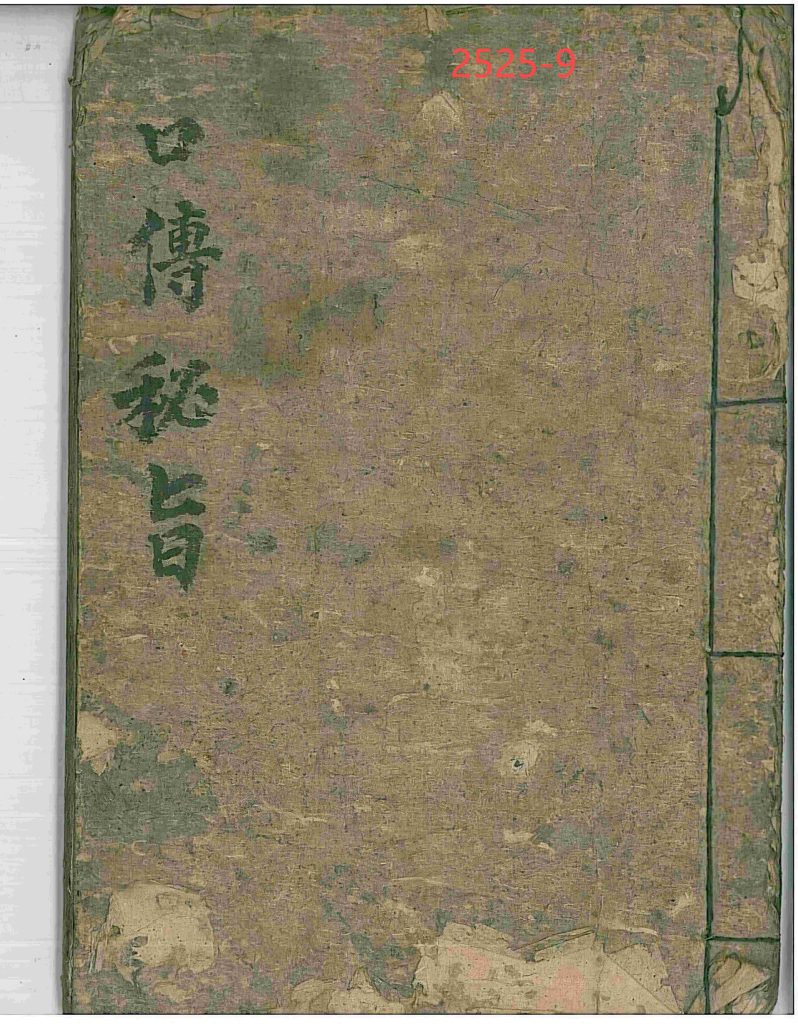 2525-9
口傳秘旨